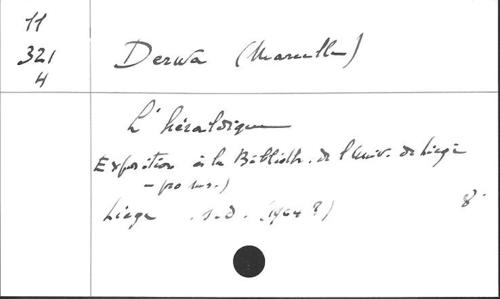 11
321
4
Derwa (Marcelle)
L'héraldique
Exposition à la Biblioth. de l'Univ. de Liège
Liège s.d. (1964?) 8°